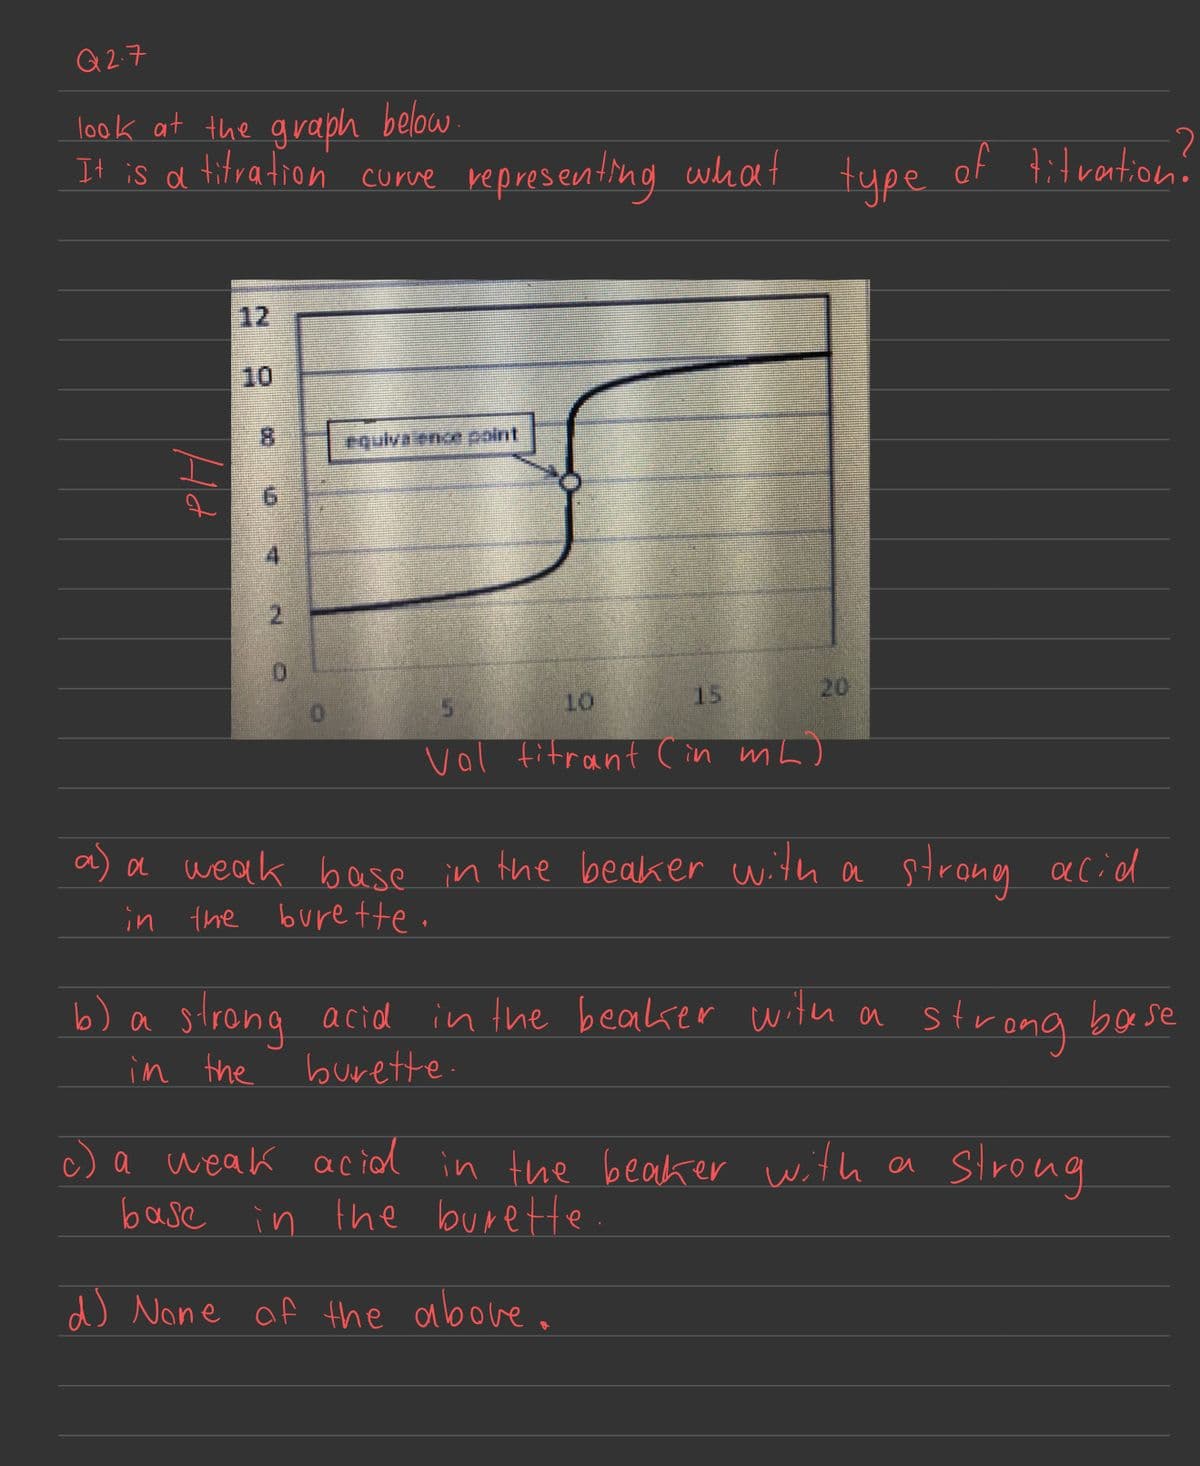 Q 2.7
look at the graph below.
It is a titration curve representing what type of titration?
12
10
8
equivalence point
6
4
2
0
0 5 10 15 20
PH
Vol titrant (in mL)
a) a weak base in the beaker with a strong acid
in the burette.
b) a strong acid in the beaker with a strong base
in the burette.
c) a weak acid in the beaker with a strong
base in the burette.
d) None of the above.